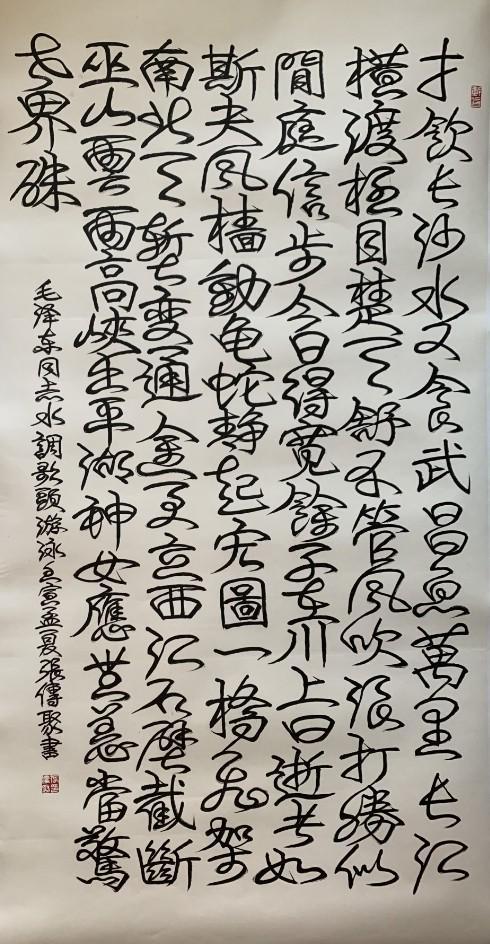 才飲长沙水又食武昌魚萬里长江
横渡极目楚天舒不管風吹浪打勝似
閒庭信步今日得寬餘子在川上曰逝者如
斯夫風檣動龟蛇静起宏圖一橋飛架
南北天塹变通途更立西江石壁截斷
巫山雲雨高峡出平湖神女應無恙當驚
世界殊
毛泽东同志水調歌頭游泳壬寅孟夏張傳聚書